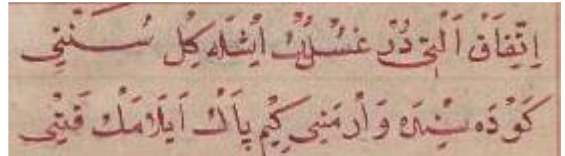 اِتِّفَاقْ اَلْتِی دُرْ غُسْلُڭْ اٰیشْلَه کِل سُنَّتِنِی
کَوْدَه سِنْدَه وَاْرْ مَنِی کِیمْ پَاكْ اَیْلَامَكْ قَنِی